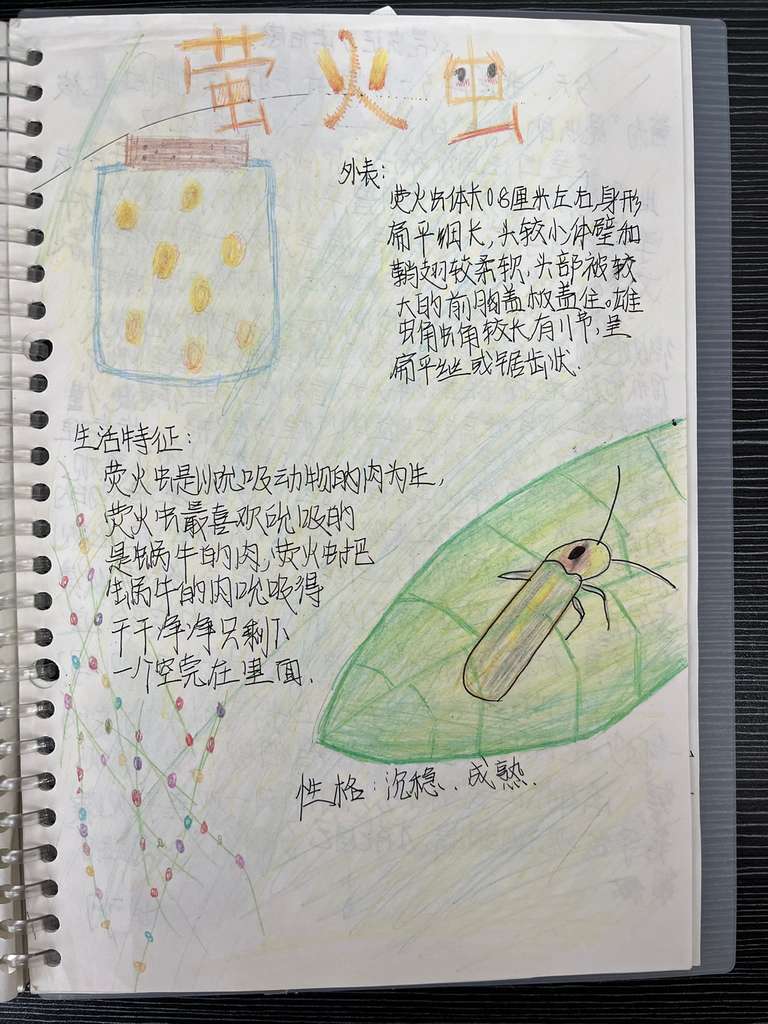 萤火虫
外表：
荧火虫体长0.8厘米左右,身形
扁平细长,头较小体壁和
鞘翅较柔软,头部被较
大的前胸盖板盖住。雄
虫触角较长有11节,呈
扁平丝或锯齿状.
生活特征：
荧火虫是以吮吸动物的肉为生,
荧火虫最喜欢吮吸的
是蜗牛的肉,荧火虫把
蜗牛的肉吮吸得
干干净净只剩下
一个空壳在里面.
性格：沉稳、成熟.